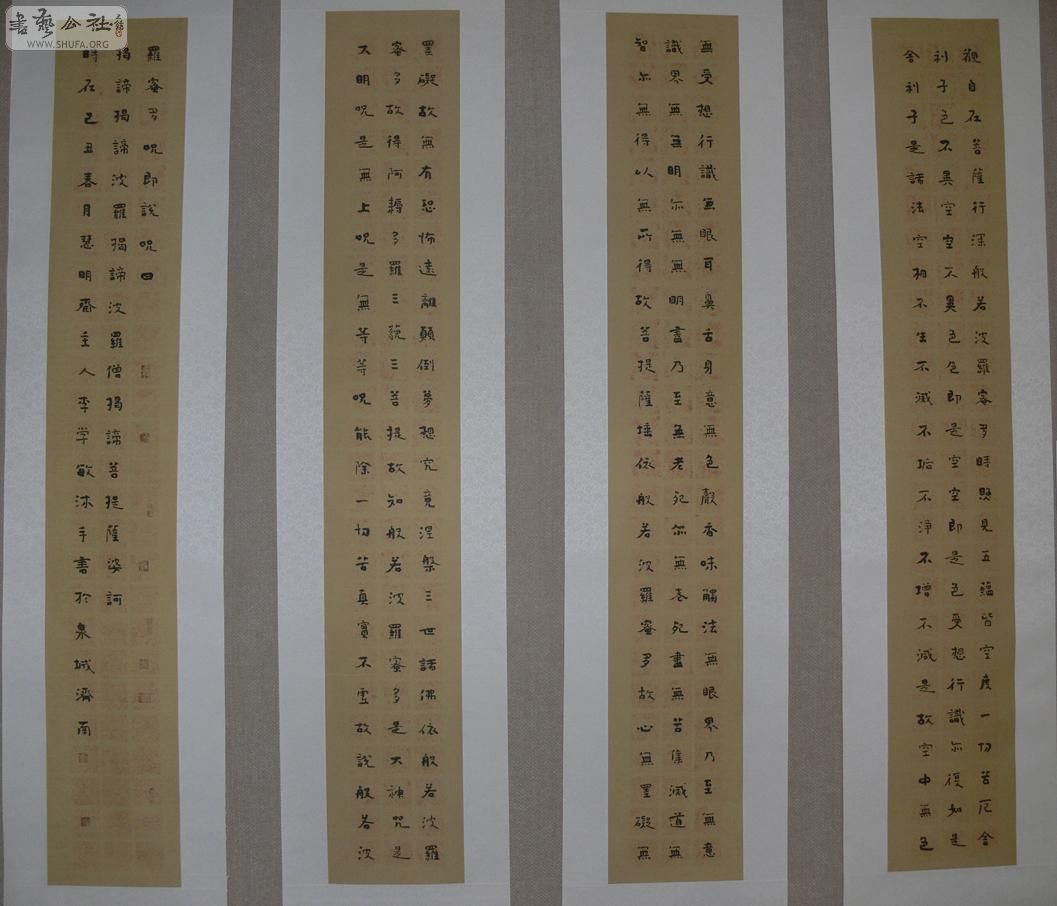 書藝公社
WWW.SHUFA.ORG
觀自在菩薩行深般若波羅蜜多時照見五蘊皆空度一切苦厄舍
利子色不異空空不異色色即是空空即是色受想行識亦復如是
舍利子是諸法空相不生不滅不垢不淨不增不減是故空中無色
無受想行識無眼耳鼻舌身意無色聲香味觸法無眼界乃至無意
識界無無明亦無無明盡乃至無老死亦無老死盡無苦集滅道無
智亦無得以無所得故菩提薩埵依般若波羅蜜多故心無罣礙無
罣礙故無有恐怖遠離顛倒夢想究竟涅槃三世諸佛依般若波羅
蜜多故得阿耨多羅三藐三菩提故知般若波羅蜜多是大神咒是
大明呪是無上呪是無等等呪能除一切苦真實不虛故說般若波
羅蜜多呪即說呪曰
揭諦揭諦波羅揭諦波羅僧揭諦菩提薩婆訶
時在己丑春月慧明齋主人李学敏沐手書於泉城濟南